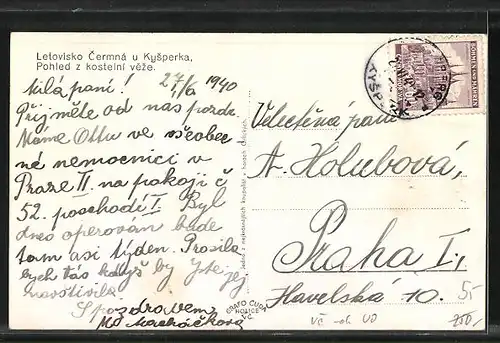 Letovisko Čermná u Kyšperka,
Pohled z kostelní věže.
27/6 1940
Milá paní!
Přijměte od nás pozdr.
Máme Ottu ve všeobec-
né nemocnici v
Praze II. na pokoji č
52. poschodí I. Byl
dnes operován bude
tam asi týden. Prosila
bych Vás kdyš by jste jej
navštívila.
S pozdravem
Md Macháčková
Velectěná paní
A. Holubová,
Praha I.,
Havelská 10.
GRAFO ČUDA
HOLICE
VČ.
5-
250,-